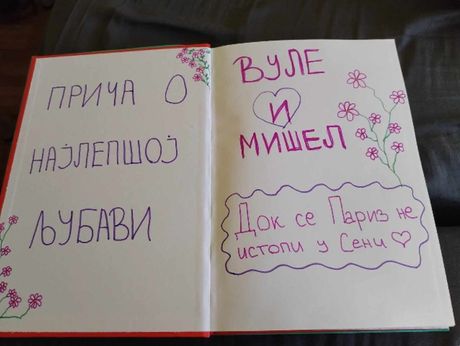 ПРИЧА О
НАЈЛЕПШОЈ
ЉУБАВИ
ВУЛЕ
И
МИШЕЛ
Док се Париз не
истопи у Сени